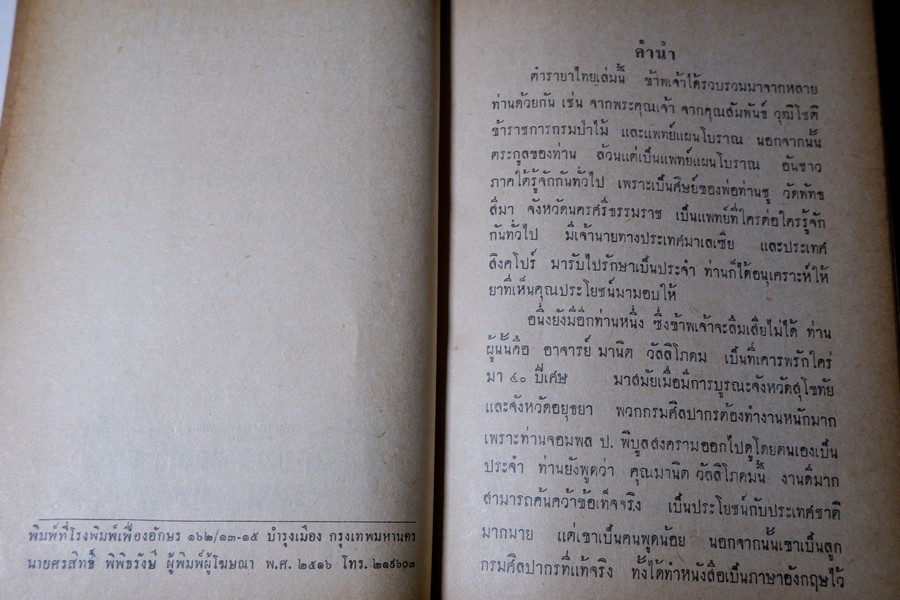 พิมพ์ที่โรงพิมพ์เฟื่องอักษร ๑๖๒/๑๓-๑๕ บำรุงเมือง กรุงเทพมหานคร
นายศรสิทธิ์ พิพิธรังษี ผู้พิมพ์ผู้โฆษณา พ.ศ. ๒๕๑๖ โทร. ๒๑๙๖๐๓
คำนำ
ตำรายาไทยเล่มนี้ ข้าพเจ้าได้รวบรวมมาจากหลาย
ท่านด้วยกัน เช่น จากพระคุณเจ้า จากคุณสัมพันธ์ วุฒิโชติ
ข้าราชการกรมป่าไม้ และแพทย์แผนโบราณ นอกจากนั้น
ตระกูลของท่าน ล้วนแต่เป็นแพทย์แผนโบราณ อันชาว
ภาคใต้รู้จักกันทั่วไป เพราะเป็นศิษย์ของพ่อท่านชู วัดพัทธ
สีมา จังหวัดนครศรีธรรมราช เป็นแพทย์ที่ใครต่อใครรู้จัก
กันทั่วไป มีเจ้านายทางประเทศมาเลเซีย และประเทศ
สิงคโปร์ มารับไปรักษาเป็นประจำ ท่านก็ได้อนุเคราะห์ให้
ยาที่เห็นคุณประโยชน์มามอบให้
อนึ่งยังมีอีกท่านหนึ่ง ซึ่งข้าพเจ้าจะลืมเสียไม่ได้ ท่าน
ผู้นั้นคือ อาจารย์ มานิต วัลลิโภดม เป็นที่เคารพรักใคร่
มา ๔๐ ปีเศษ มาสมัยเมื่อมีการบูรณะจังหวัดสุโขทัย
และจังหวัดอยุธยา พวกกรมศิลปากรต้องทำงานหนักมาก
เพราะท่านจอมพล ป. พิบูลสงครามออกไปดูโดยตนเองเป็น
ประจำ ท่านยังพูดว่า คุณมานิต วัลลิโภดมนี้ งานดีมาก
สามารถค้นคว้าข้อเท็จจริง เป็นประโยชน์กับประเทศชาติ
มากมาย แต่เขาเป็นคนพูดน้อย นอกจากนั้นเขาเป็นลูก
กรมศิลปากรที่แท้จริง ทั้งได้ทำหนังสือเป็นภาษาอังกฤษไว้